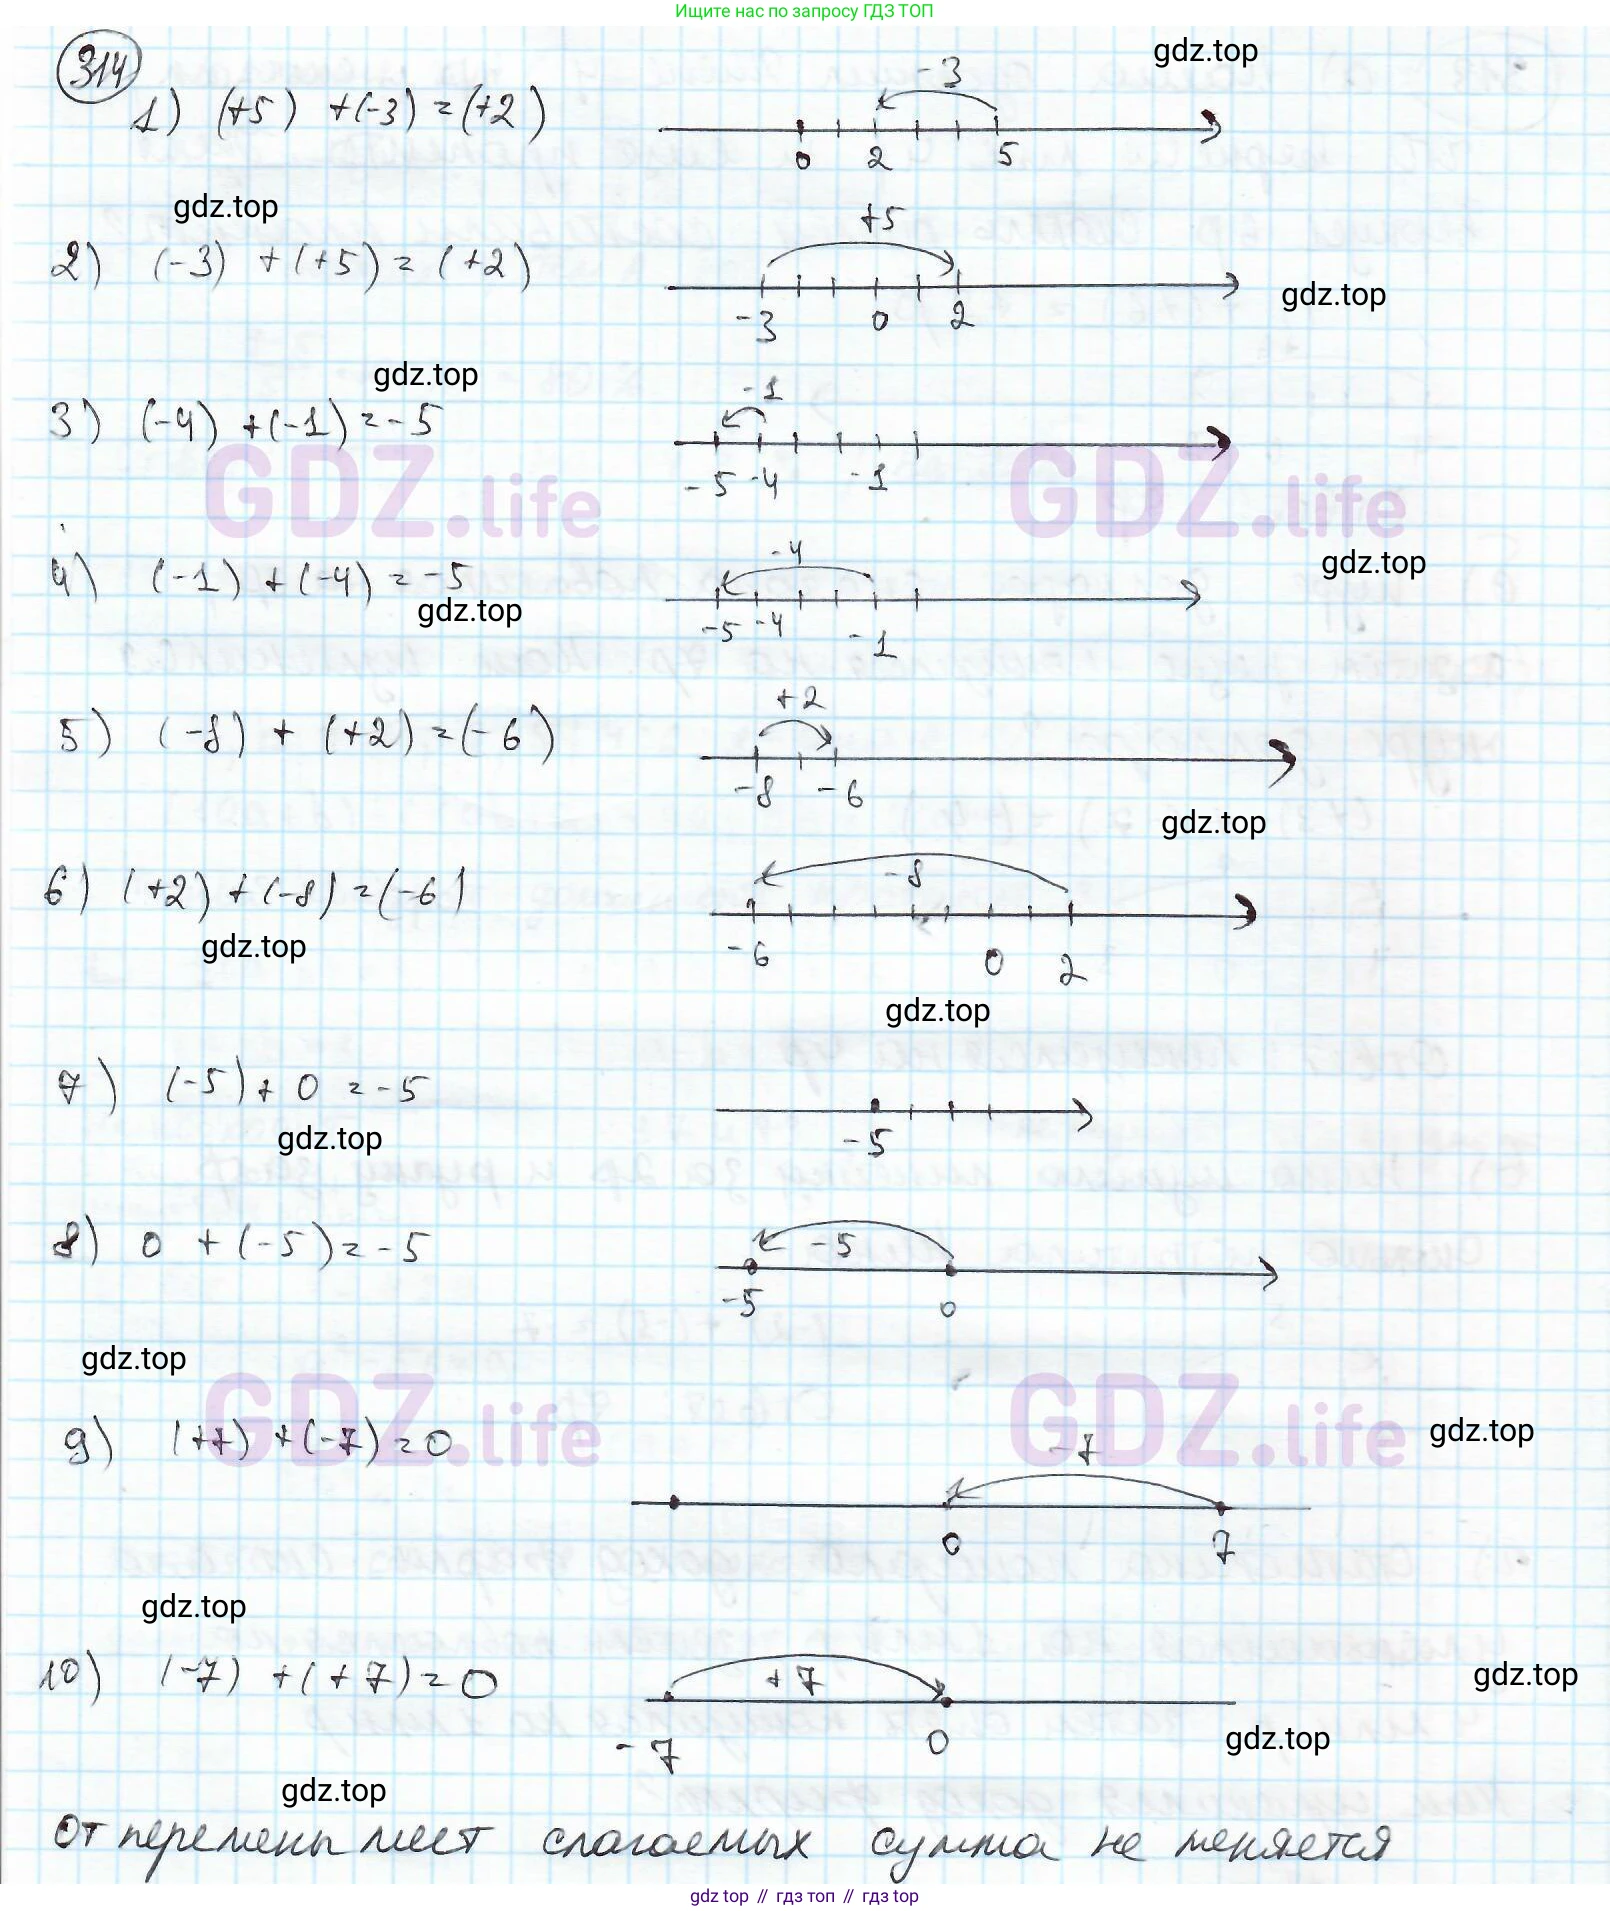 Ищите нас по запросу ГДЗ ТОП
314
gdz.top
1) (+5) +(-3) = (+2)
-3
0 2 5
gdz.top
2) (-3) + (+5) = (+2)
+5
-3 0 2
gdz.top
gdz.top
3) (-4) +(-1) = -5
-1
-5 -4 -1
GDZ.life GDZ.life
4) (-1) + (-4) = -5
-4
-5 -4 -1
gdz.top
gdz.top
5) (-8) + (+2) = (-6)
+2
-8 -6
gdz.top
6) (+2) + (-8) = (-6)
-8
-6 0 2
gdz.top
gdz.top
7) (-5) + 0 = -5
-5
gdz.top
8) 0 + (-5) = -5
-5
-5 0
gdz.top
GDZ.life GDZ.life
9) (+7) + (-7) = 0
-7
0 7
gdz.top
gdz.top
10) (-7) + (+7) = 0
+7
-7 0
gdz.top
gdz.top
gdz.top
От перемены мест слагаемых сумма не меняется
gdz top // гдз топ // gdz top